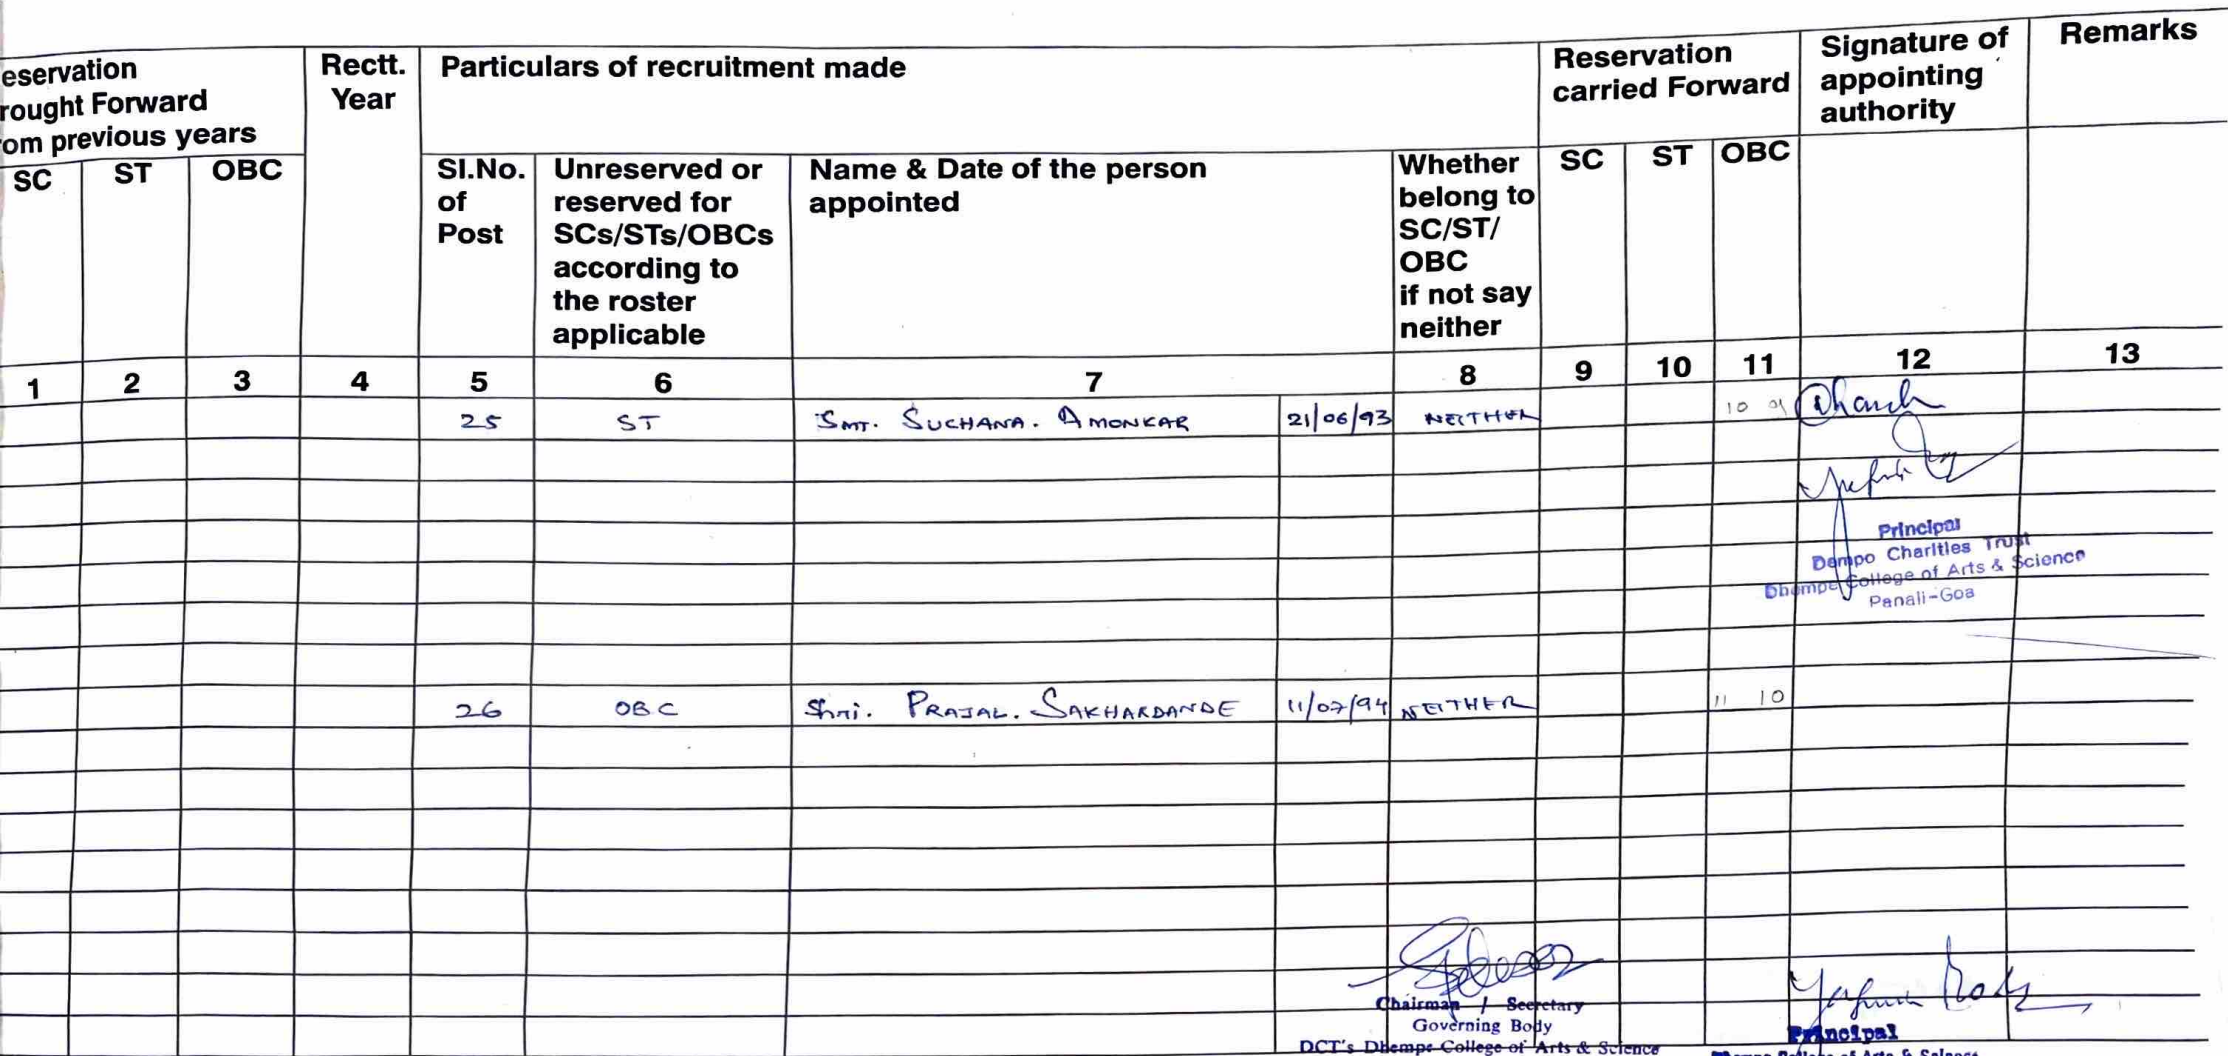 eservation
rought Forward
om previous years
Rectt.
Year
Particulars of recruitment made
Reservation
carried Forward
Signature of
appointing
authority
Remarks
SC ST OBC
Sl.No.
of
Post
Unreserved or
reserved for
SCs/STs/OBCs
according to
the roster
applicable
Name & Date of the person
appointed
Whether
belong to
SC/ST/
OBC
if not say
neither
SC ST OBC
1 2 3 4 5 6 7 8 9 10 11 12 13
25 ST SMT. SUCHANA. AMONKAR 21/06/93 NEITHER 10
Principal
Dempo Charities Trust
Dhempe College of Arts & Science
Panali-Goa
26 OBC Shri. PRAJAL. SAKHARDANDE 11/07/94 NEITHER 11 10
Chairman / Secretary
Governing Body
DCT's Dhempe College of Arts & Science
Principal
College of Arts & Science